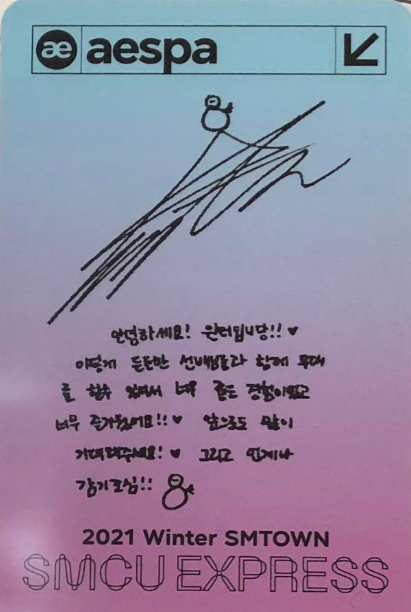 æ aespa
안녕하세요! 윈터입니당!! ♥
이렇게 든든한 선배님들과 함께 무대
를 할수 있어서 너무 좋은 경험이였고
너무 즐거웠어요!! ♥ 앞으로도 많이
기대해주세요! ♥ 그리고 언제나
감기조심!!
2021 Winter SMTOWN
SMCU EXPRESS